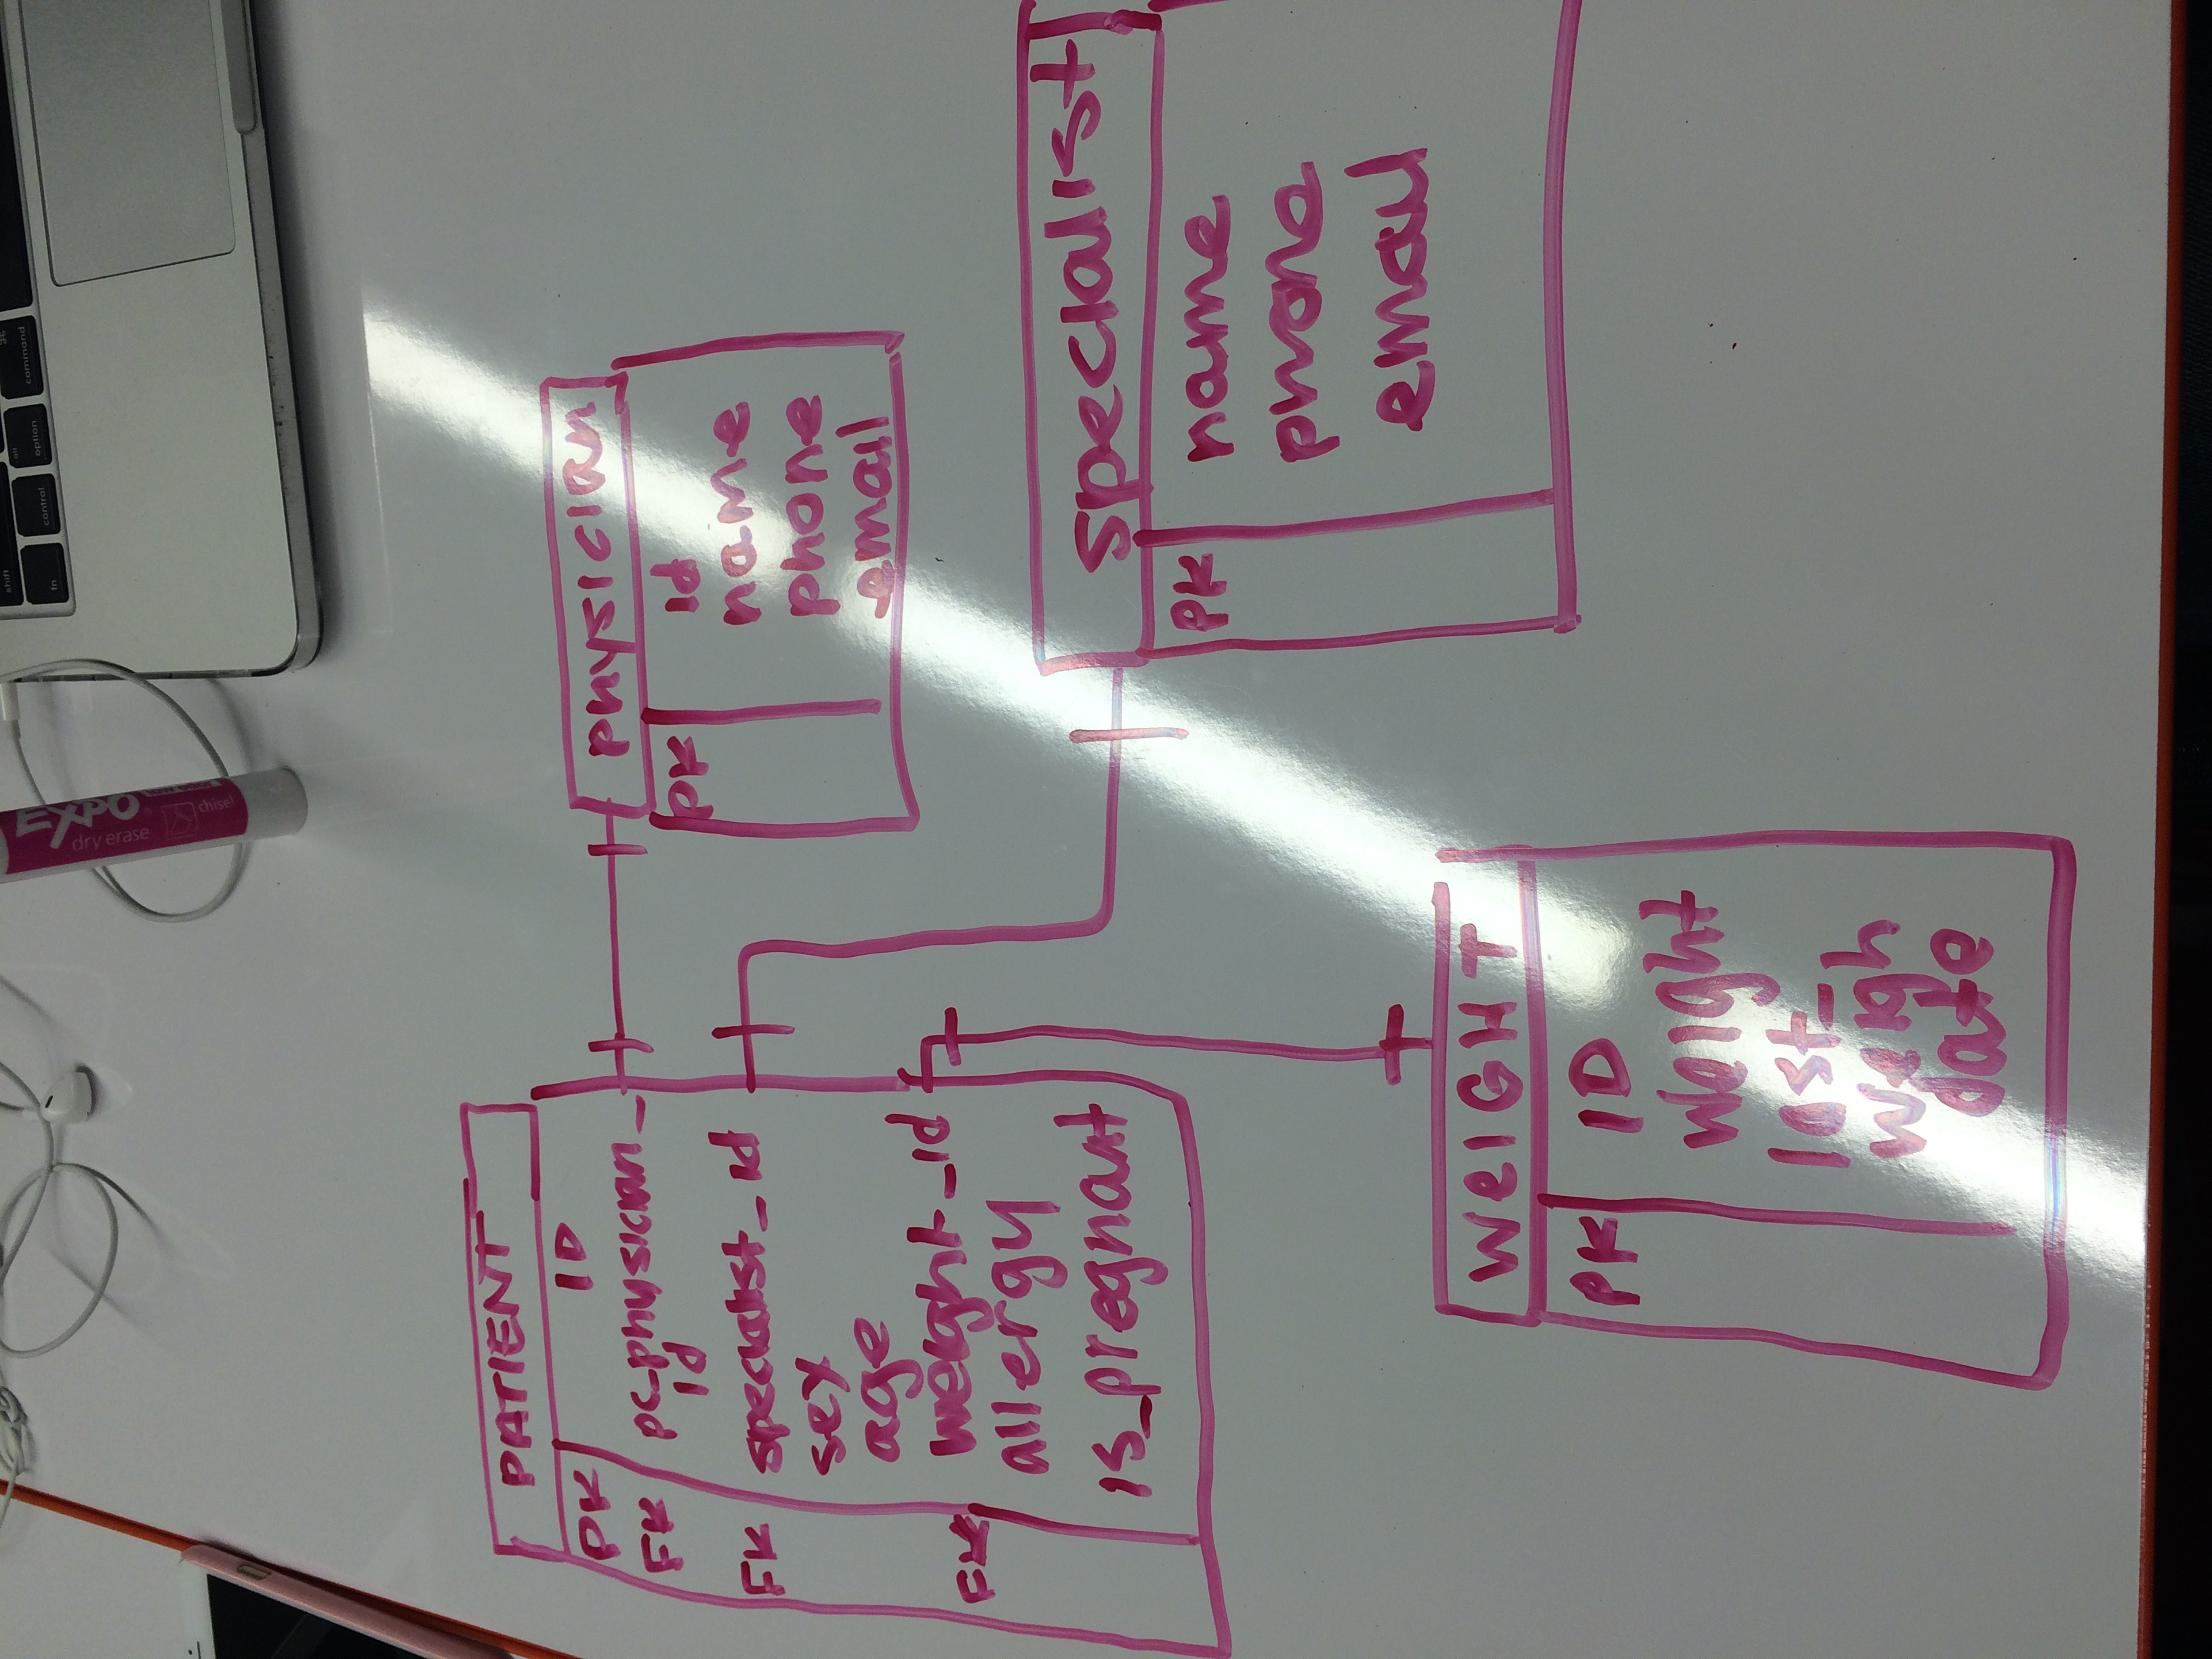 shift
fn
control
alt
option
⌘
command
EXPO
dry erase
chisel
PATIENT
PK ID
FK pc_physician_
id
FK specialist_id
sex
age
FK weight_id
allergy
is_pregnant
physician
PK id
name
phone
email
specialist
PK name
phone
email
WeIGHT
PK ID
weight
last_
weigh
date